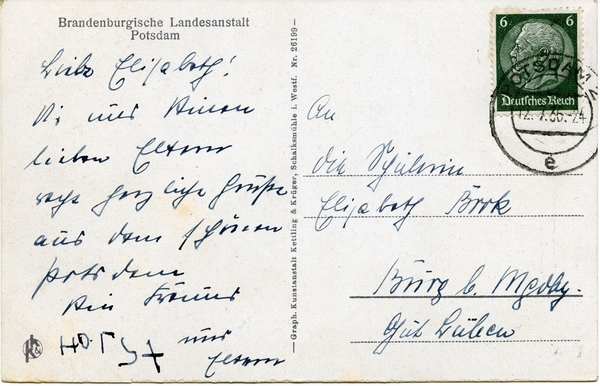 Brandenburgische Landesanstalt
Potsdam
Liebe Elisabeth!
Dir und Deinen
lieben Eltern
recht herzliche Grüße
aus dem schönen
Potsdam
Dein
und
Eltern
HORST
Nr. 26199
Graph. Kunstanstalt Kettling & Krüger, Schalksmühle i. Westf.
K&K
6 6
Deutsches Reich
POTSDAM
e
An
die Schülerin
Elisabeth Brok
Burg b. Mgdbg.
Gut Lüben